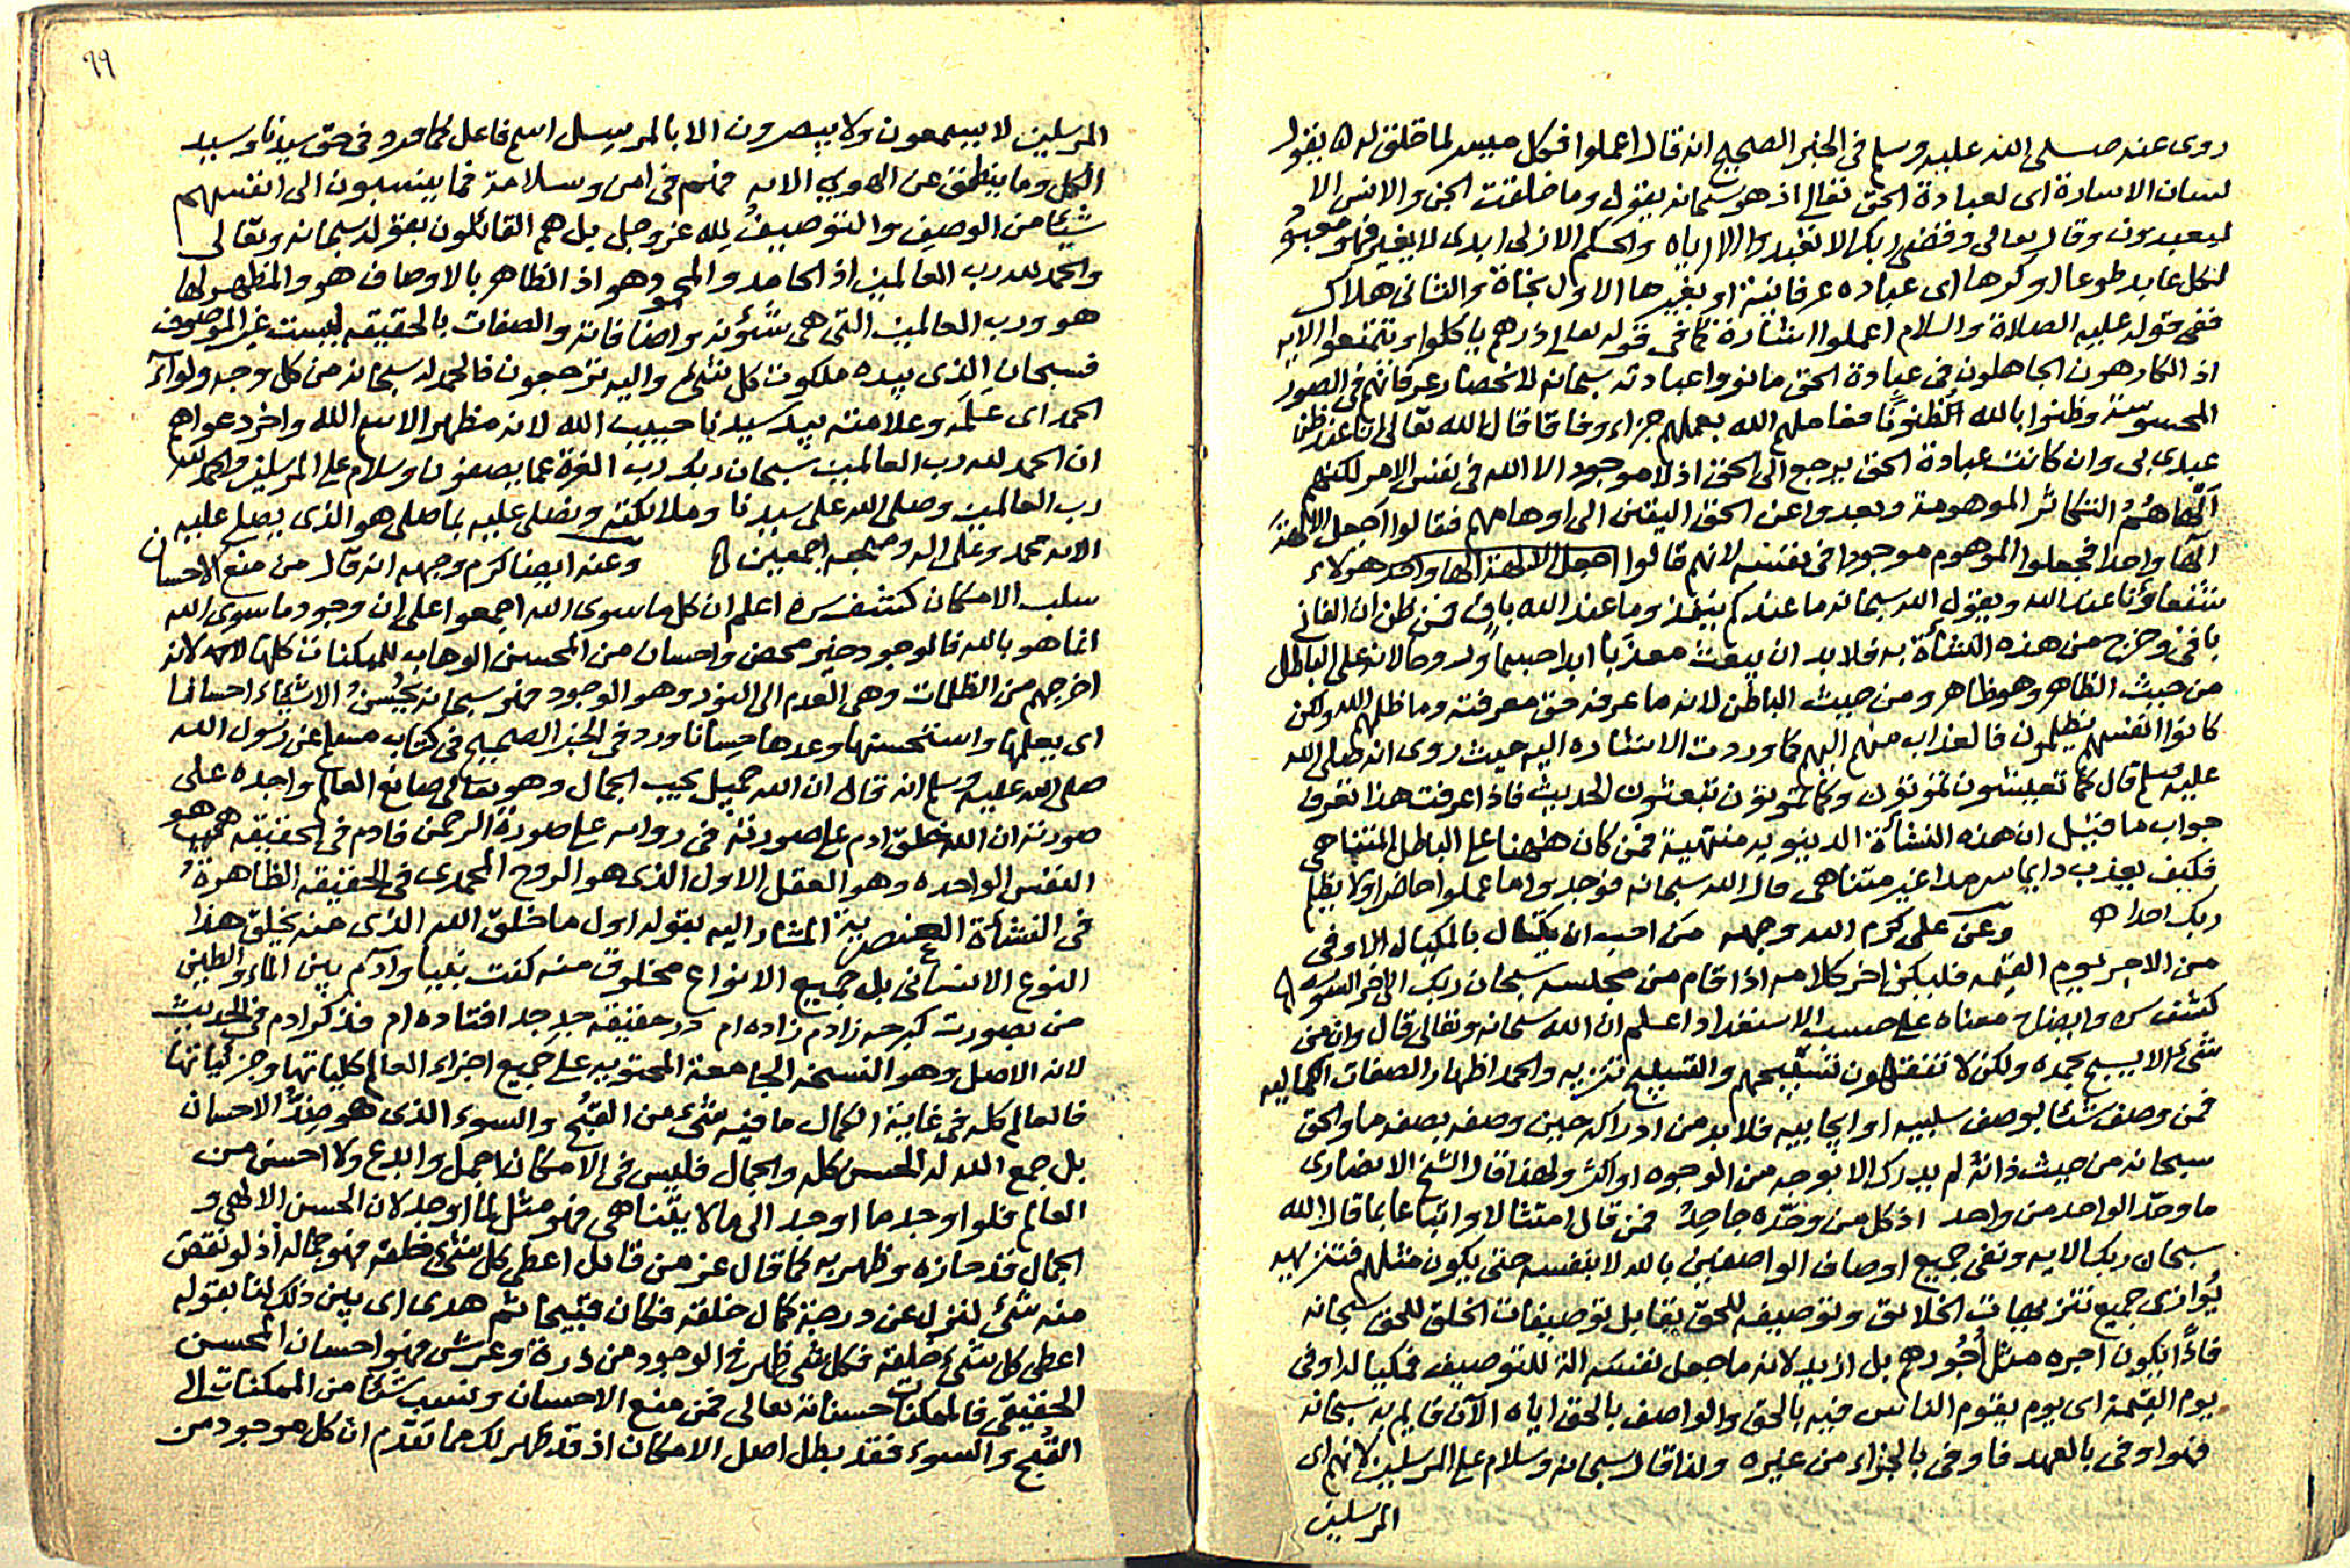 روى عنه صلى الله عليه وسلم فى الخبر الصحيح انه قال اعملوا فكل ميسر لما خلق له ه يقول
لسان الاشارة اى لعبادة الحق تعالى اذ هو سبحانه يقول وما خلقت الجن والانس الا
ليعبدون وقال تعالى وقضى ربك الا تعبدوا الا اياه والحكم الازلى ابدى لا يغير فهو معبود
لكل عابد طوعا او كرها اى عباده عرفانية او بغيرها الاول نجاة والثانى هلاك
ففى قوله عليه الصلاة والسلام اعملوا اشارة كما فى قوله تعالى ذرهم ياكلوا ويتمتعوا الايه
اذ الكارهون الجاهلون فى عبادة الحق مانووا عبادته سبحانه لانحصار عرفانهم فى الصور
المحسوسة وظنوا بالله الظنونا فعاملهم الله بعملهم جزاء وفاقا قال الله تعالى انا عند ظن
عبدى بى وان كانت عبادة الحق يرجع الى الحق اذ لا موجود الا الله فى نفس الامر لكنهم
الهاهم التكاثر الموهومة وبعدوا عن الحق اليقين الى اوهامهم فقالوا اجعل الالهة
الها واحدا فجعلوا الموهوم موجودا فى نفسه لانهم قالوا اجعل الالهة الها واحدا هولاء
شفعاؤنا عند الله ويقول الله سبحانه ما عندكم ينفذ وما عند الله باق فمن ظن ان الفانى
باقى وخرج من هذه النشأة به فلا بد ان يبعث معذبا ابدا جسما وروحا لانه على الباطل
من حيث الظاهر وهو ظاهر ومن حيث الباطن لانه ما عرفه حق معرفته وما ظلمهم الله ولكن
كانوا انفسهم يظلمون فالعذاب منهم اليهم كما وردت الاشاره اليه حيث روى انه صلى الله
عليه وسلم قال كما تعيشون تموتون وكما تموتون تبعثون الحديث فاذا عرفت هذا تعرف
جواب ما قيل ان هذه النشأة الدنيويه منتهية فمن كان ههنا على الباطل المتناهى
فكيف يعذب دايما سرمدا غير متناهى قال الله سبحانه فوجدوا ما عملوا حاضرا ولا يظلم
ربك احدا ه وعن على كرم الله وجهه من احب ان يكتال بالمكيال الاوفى
من الاجر يوم القيمه فليكن اخر كلامه اذا قام من مجلسه سبحان ربك الى اخر السوره ه
كشف سره وايضاح معناه على حسب الاستعداد اعلم ان الله سبحانه وتعالى قال وان من
شئ الا يسبح بحمده ولكن لا تفقهون تسبيحهم والتسبيح تنزيه والحمد اظهار الصفات الكماليه
فمن وصف شئا بوصف سلبيه او ايجابيه فلا بد من ادراكه حين وصفه بصفه ما والحق
سبحانه من حيث ذاته لم يدرك الا بوجه من الوجوه او اكثر ولهذا قال الشيخ الانصارى
ما وحد الواحد من واحد اذ كل من وحده جاحد فمن قال امتثالا واتباعا بما قال الله
سبحان ربك الايه ونفى جميع اوصاف الواصفين بالله لا بنفسه حتى يكون مثلهم فتنزيهه
يوازى جميع تنزيهات الخلائق وتوصيفه للحق يقابل توصيفات الخلق للحق سبحانه
فاذًا يكون اجره مثل اجورهم بل ازيد لانه ما جعل نفسه الة للتوصيف فمكياله اوفى
يوم القيمة اى يوم يقوم الناس فيه بالحق والواصف بالحق اياه الآن قايم به سبحانه
فهو اوفى بالعهد فاوفى بالجزاء من غيره ولذا قال سبحانه وسلام على المرسلين لانهم اى
المرسلين
٩٩
المرسلين لا يسمعون ولا يبصرون الا بالمرسل اسم فاعل كما ورد فى حق سيدنا وسيد
الكل وما ينطق عن الهوى الايه فهم فى امن وسلامة فما ينسبون الى انفسهم
شيئا من الوصف والتوصيف لله عز وجل بل هم القائلون بقوله سبحانه وتعالى
والحمد لله رب العالمين اذ الحامد والمحمود هو اذ الظاهر بالاوصاف هو والمظهر لها
هو ورب العالمين التى هى شؤنه واضافاته والصفات بالحقيقه ليست غير الموصوف
فسبحان الذى بيده ملكوت كل شئ واليه ترجعون فالحمد له سبحانه من كل وجه ولواء
الحمد اى علمه وعلامته بيد سيدنا حبيب الله لانه مظهر الاسم الله واخر دعواهم
ان الحمد لله رب العالمين سبحان ربك رب العزة عما يصفون وسلام على المرسلين والحمد لله
رب العالمين وصلى الله على سيدنا وملائكته ونصلى عليه بما صلى هو الذى يصلى عليه
الانه محمد وعلى اله وصحبه اجمعين ه وعنه ايضا كرم وجهه انه قال من منع الاحسان
سلب الامكان كشف سره اعلم ان كل ما سوى الله اجمعوا على ان وجود ما سوى الله
انما هو بالله فالوجود خير محض واحسان من المحسن الوهاب للممكنات كلها لانه
اخرجهم من الظلمات وهى العدم الى النور وهو الوجود فهو سبحانه يحسن الاشياء احسانا
اى يعملها واستحسنها وعدها حسانا ورد فى الخبر الصحيح فى كتاب مسلم عن رسول الله
صلى الله عليه وسلم انه قال ان الله جميل يحب الجمال وهو تعالى صانع العالم واجده على
صورته ان الله خلق ادم على صورته فى روايه على صورة الرحمن فادم فى الحقيقه هو
النفس الواحده وهو العقل الاول الذى هو الروح المحمدى فى الحقيقه الظاهرة
فى النشأة العنصرية المشار اليه بقوله اول ما خلق الله الذى منه يخلق هذا
النوع الانسانى بل جميع الانواع مخلوق منه كنت نبيا وآدم بين الماء والطين
من بصورت كرچه زادم زاده ام در حقيقه جد جد افتاده ام فذكر ادم فى الحديث
لانه الاصل وهو النسخه الجامعة المحتويه على جميع اجزاء العالم كلياتها وجزئياتها
فالعالم كله فى غاية الكمال ما فيه شئ من القبح والسوء الذى هو ضد الاحسان
بل جمع الله له الحسن كله والجمال فليس فى الامكان اجمل وابدع ولا احسن من
العالم فلو اوجد ما اوجد الى ما لا يتناهى فهو مثل لما اوجد لان الحسن الالهى و
الجمال قد حازه وظهر به كما قال عز من قائل اعطى كل شئ خلقه فهو جماله اذ لو نقص
منه شئ لنزل عن درجة كمال خلقه فكان قبيحا ثم هدى اى بين ذلك لنا بقوله
اعطى كل شئ خلقه فكل شئ ظهر فى الوجود من ذرة وعرش فهو احسان المحسن
الحقيقى فالممكنات حسناته تعالى فمن منع الاحسان وينسب شئا من الممكنات الى
القبح والسوء فقد بطل اصل الامكان اذ قد ظهر لك مما تقدم ان كل موجود من